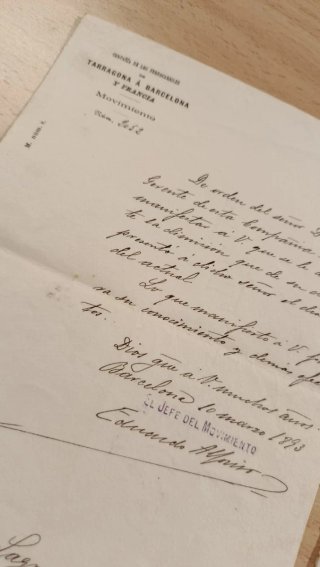 COMPAÑÍA DE LOS FERROCARRILES
DE
TARRAGONA Á BARCELONA
Y FRANCIA
Movimiento
Núm. 2652
M. núm. 2.
De orden del señor D
Gerente de esta Compañía
manifestar á V. que se le a
te la dimisión que de su c
presentó á dicho señor el día
del actual
Lo que manifiesto á V. p
ra su conocimiento y demás efe
tos.
Dios gue á V. muchos años.
Barcelona 10 marzo 1893
EL JEFE DEL MOVIMIENTO
Eduardo